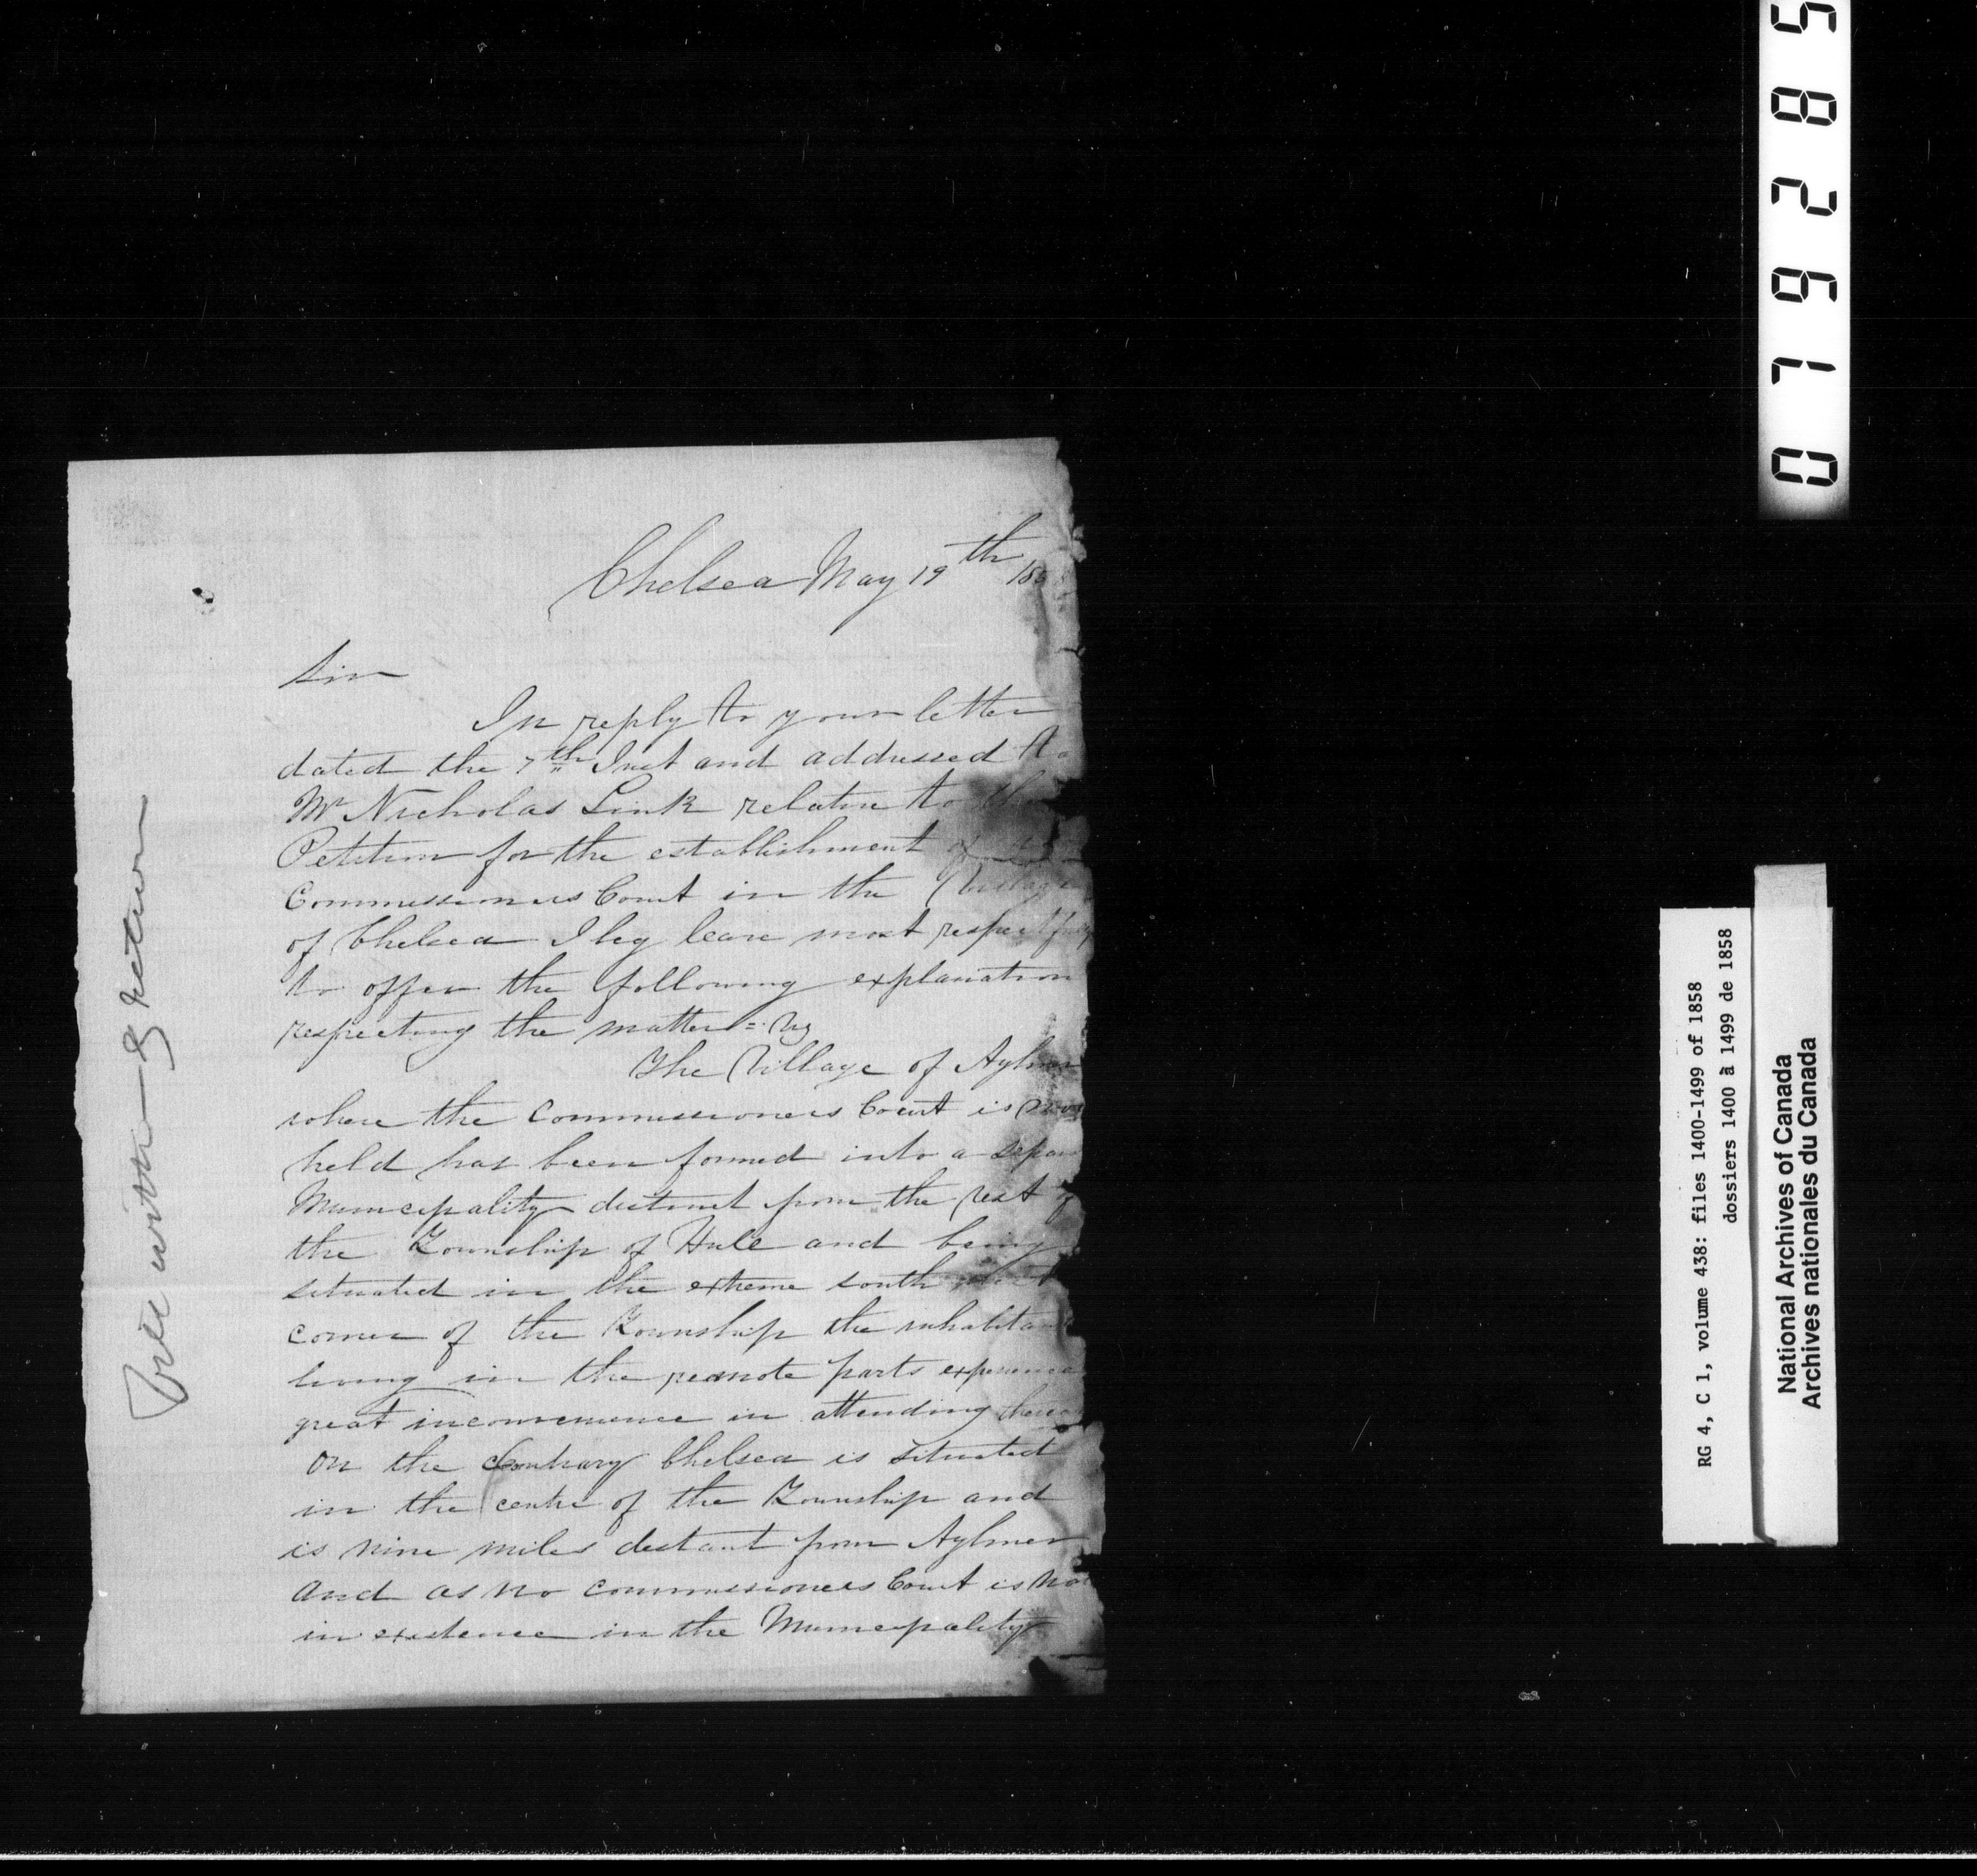 Chelsea May 19th 185
Sir
In reply to your letter
dated the 7th Inst and addressed to
Mr Nicholas Sink relative to the
Petition for the establishment of
Commissioners Court in the Village
of Chelsea I beg leave most respectfully
to offer the following explanation
respecting the matter = Viz
The Village of Aylmer
where the Commissioners Court is now
held has been formed into a separ
Municipality distinct from the rest of
the Township of Hull and being
situated in the extreme south west
corner of the Township the inhabitants
living in the remote parts experience
great inconvenience in attending
On the Contrary Chelsea is situated
in the centre of the Township and
is nine miles distant from Aylmer
and as no commissioners Court is no
in existence in the Municipality
079285
RG 4, C 1, volume 438: files 1400-1499 of 1858
dossiers 1400 à 1499 de 1858
National Archives of Canada
Archives nationales du Canada